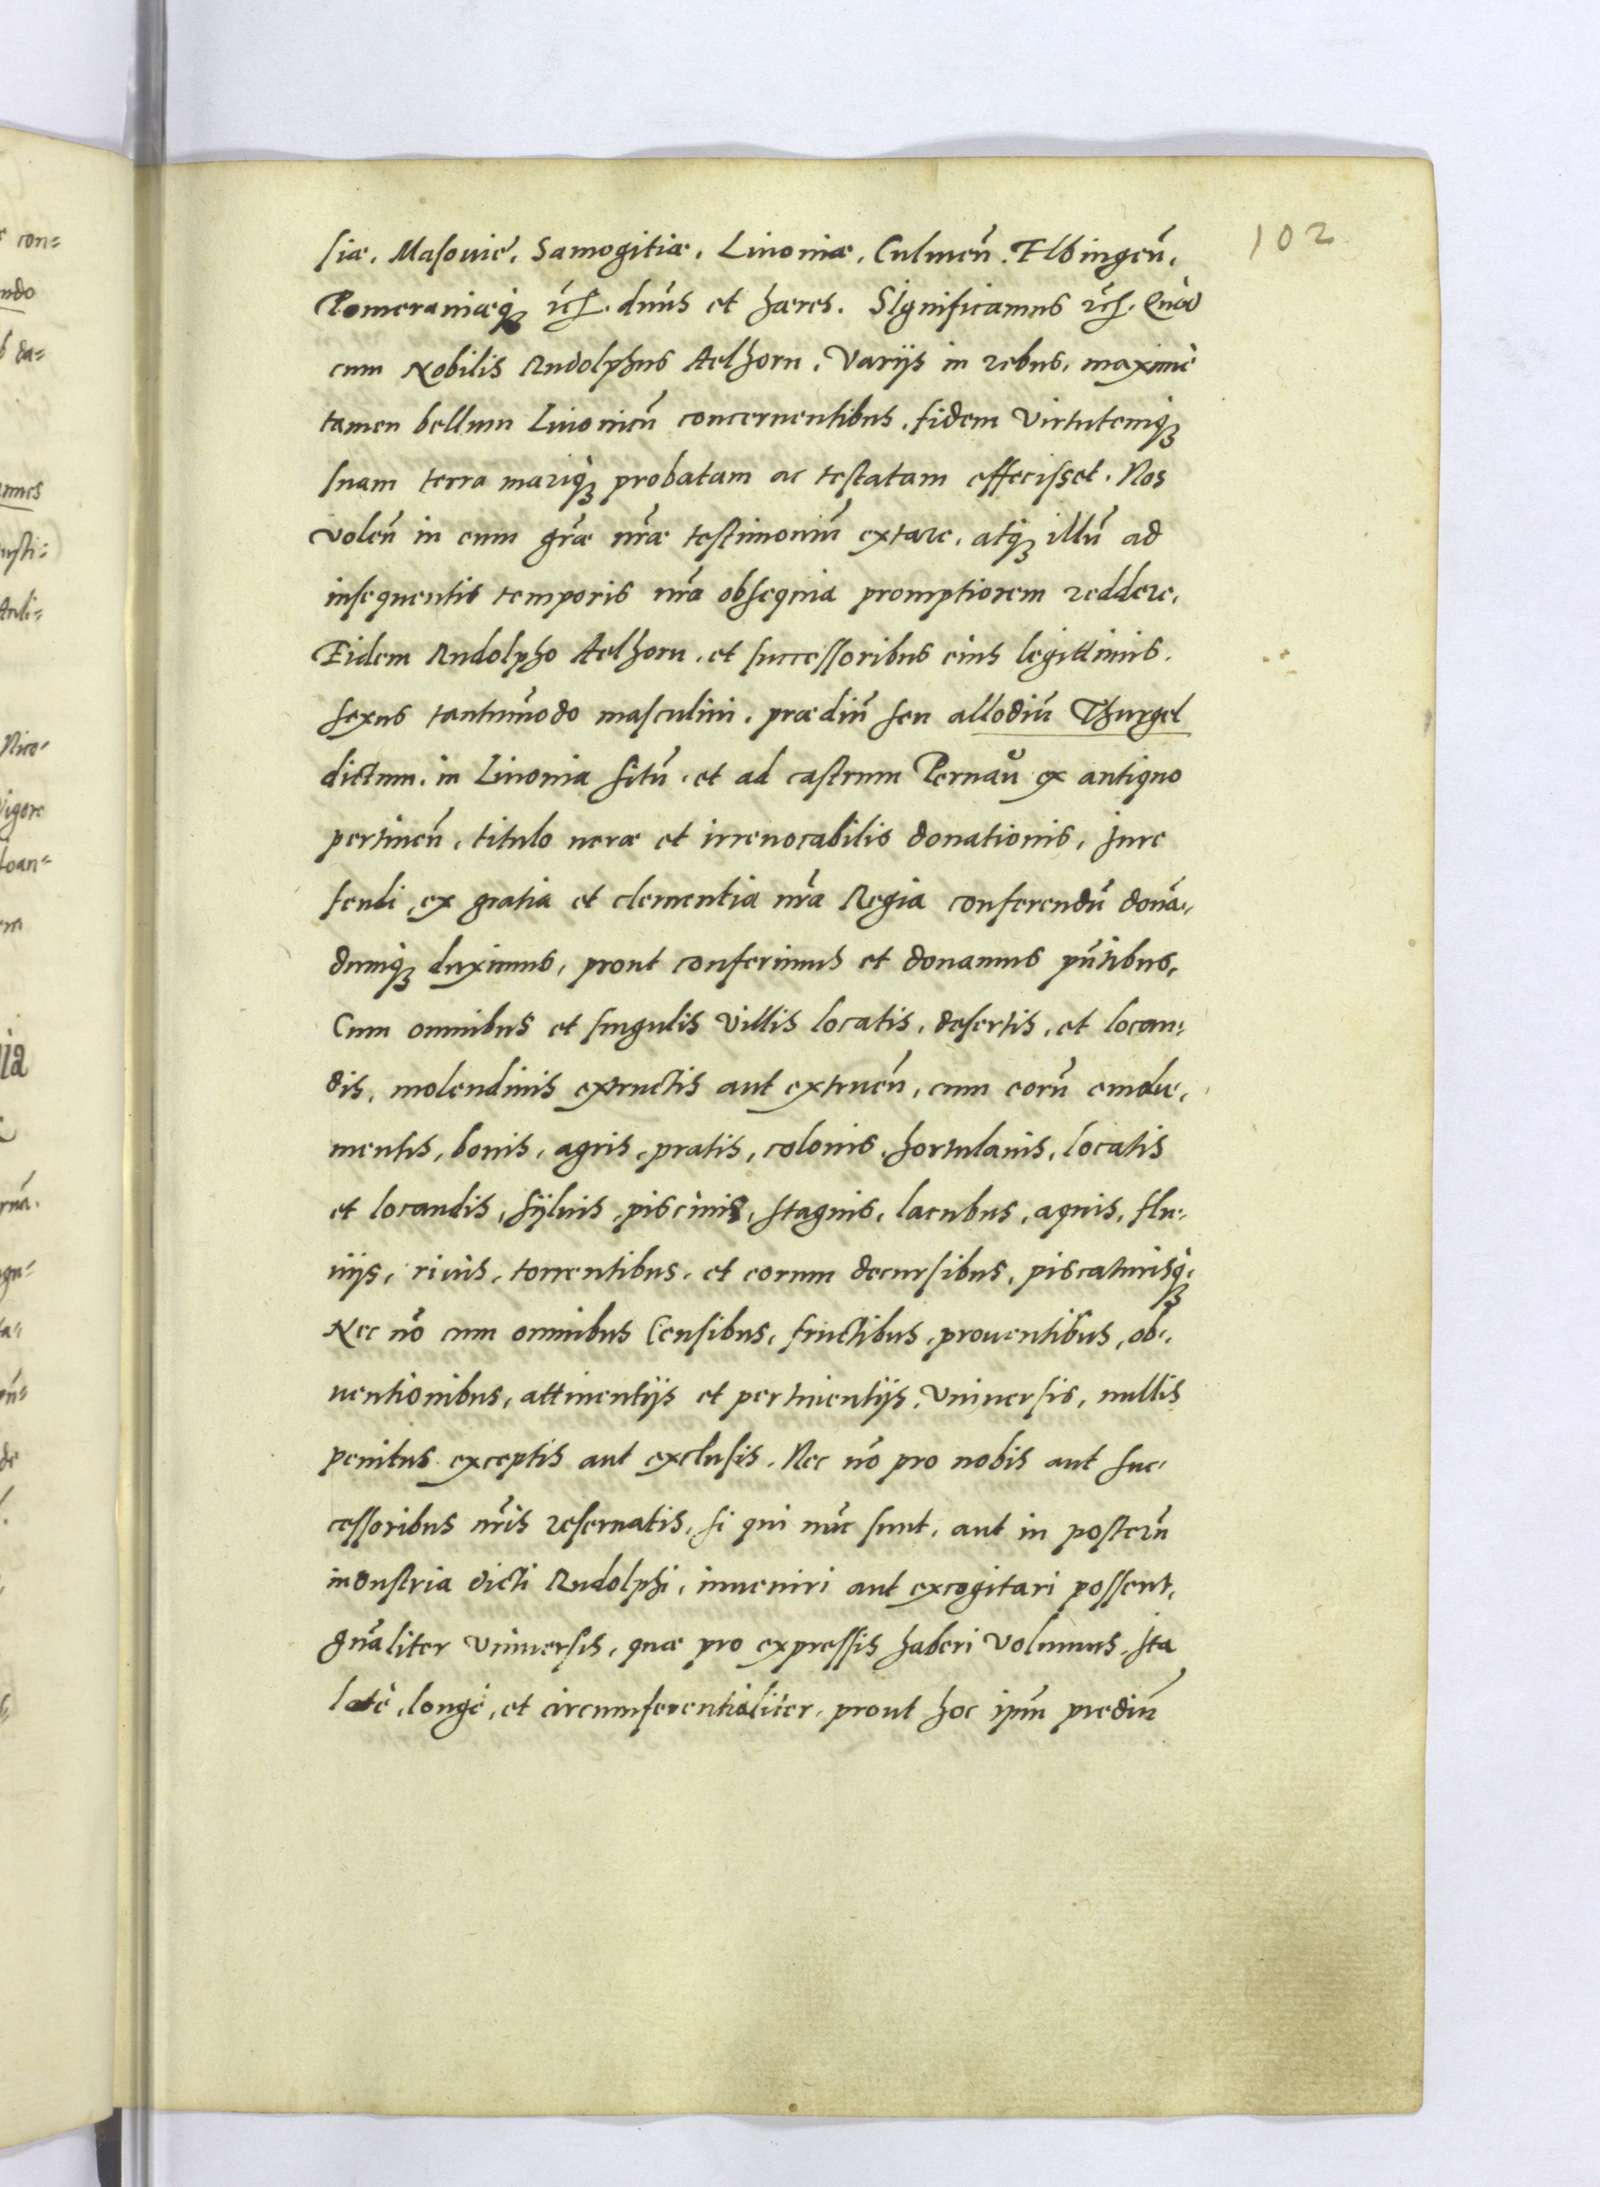 102
siæ, Masouię, Samogitiæ, Liuoniæ, Culmeñ. Elbingeñ,
Pomeraniæqꝫ ꝛc̄. dn̄us et hæres. SIgnificamus ꝛc̄. Quòd
cum Nobilis Rudolphus Aelhorn, Varijs in rebus, maximè
tamen bellum Liuonicū concernentibus, fidem Virtutemqꝫ
suam terra mariqꝫ probatam ac testatam effecisset. Nos
voleñ in eum gr̄æ nr̄æ testimoniū extare, atqꝫ illū ad
insequentis temporis nr̄a obsequia promptiorem reddere,
Eidem Rudolpho Aelhorn, et successoribus eius legittimis,
sexus tantūmodo masculini, prædiū seu allodiū Thurgel
dictum, in Liuonia sitū, et ad castrum Pernaŭ ex antiquo
pertineñ, titulo ueræ et irreuocabilis donationis, Jure
feudi, ex gratia et clementia nr̄a Regia conferendū donā-
dumqꝫ duximus, prout conferimus et donamus pn̄tibus,
Cum omnibus et singulis Villis locatis, desertis, et locan-
dis, molendinis extructis aut extrueñ, cum eorū emolu-
mentis, bonis, agris, pratis, colonis, hortulanis, locatis
et locandis, syluis, piscinis, stagnis, lacubus, aquis, flu-
uijs, riuis, torrentibus, et eorum decursibus, piscaturisqꝫ,
Nec nō cum omnibus Censibus, fructibus, prouentibus, ob-
uentionibus, attinentijs et pertinentijs, Vniuersis, nullis
penitus exceptis aut exclusis. Nec nō pro nobis aut suc-
cessoribus nr̄is reseruatis, si qui nūc sunt, aut in posterū
industria dicti Rudolphi, inueniri aut excogitari possent,
gn̄aliter Vniuersis, quæ pro expressis haberi Volumus, Ita
latè, longè, et circumferentialiter, prout hoc ipm̄ prediū